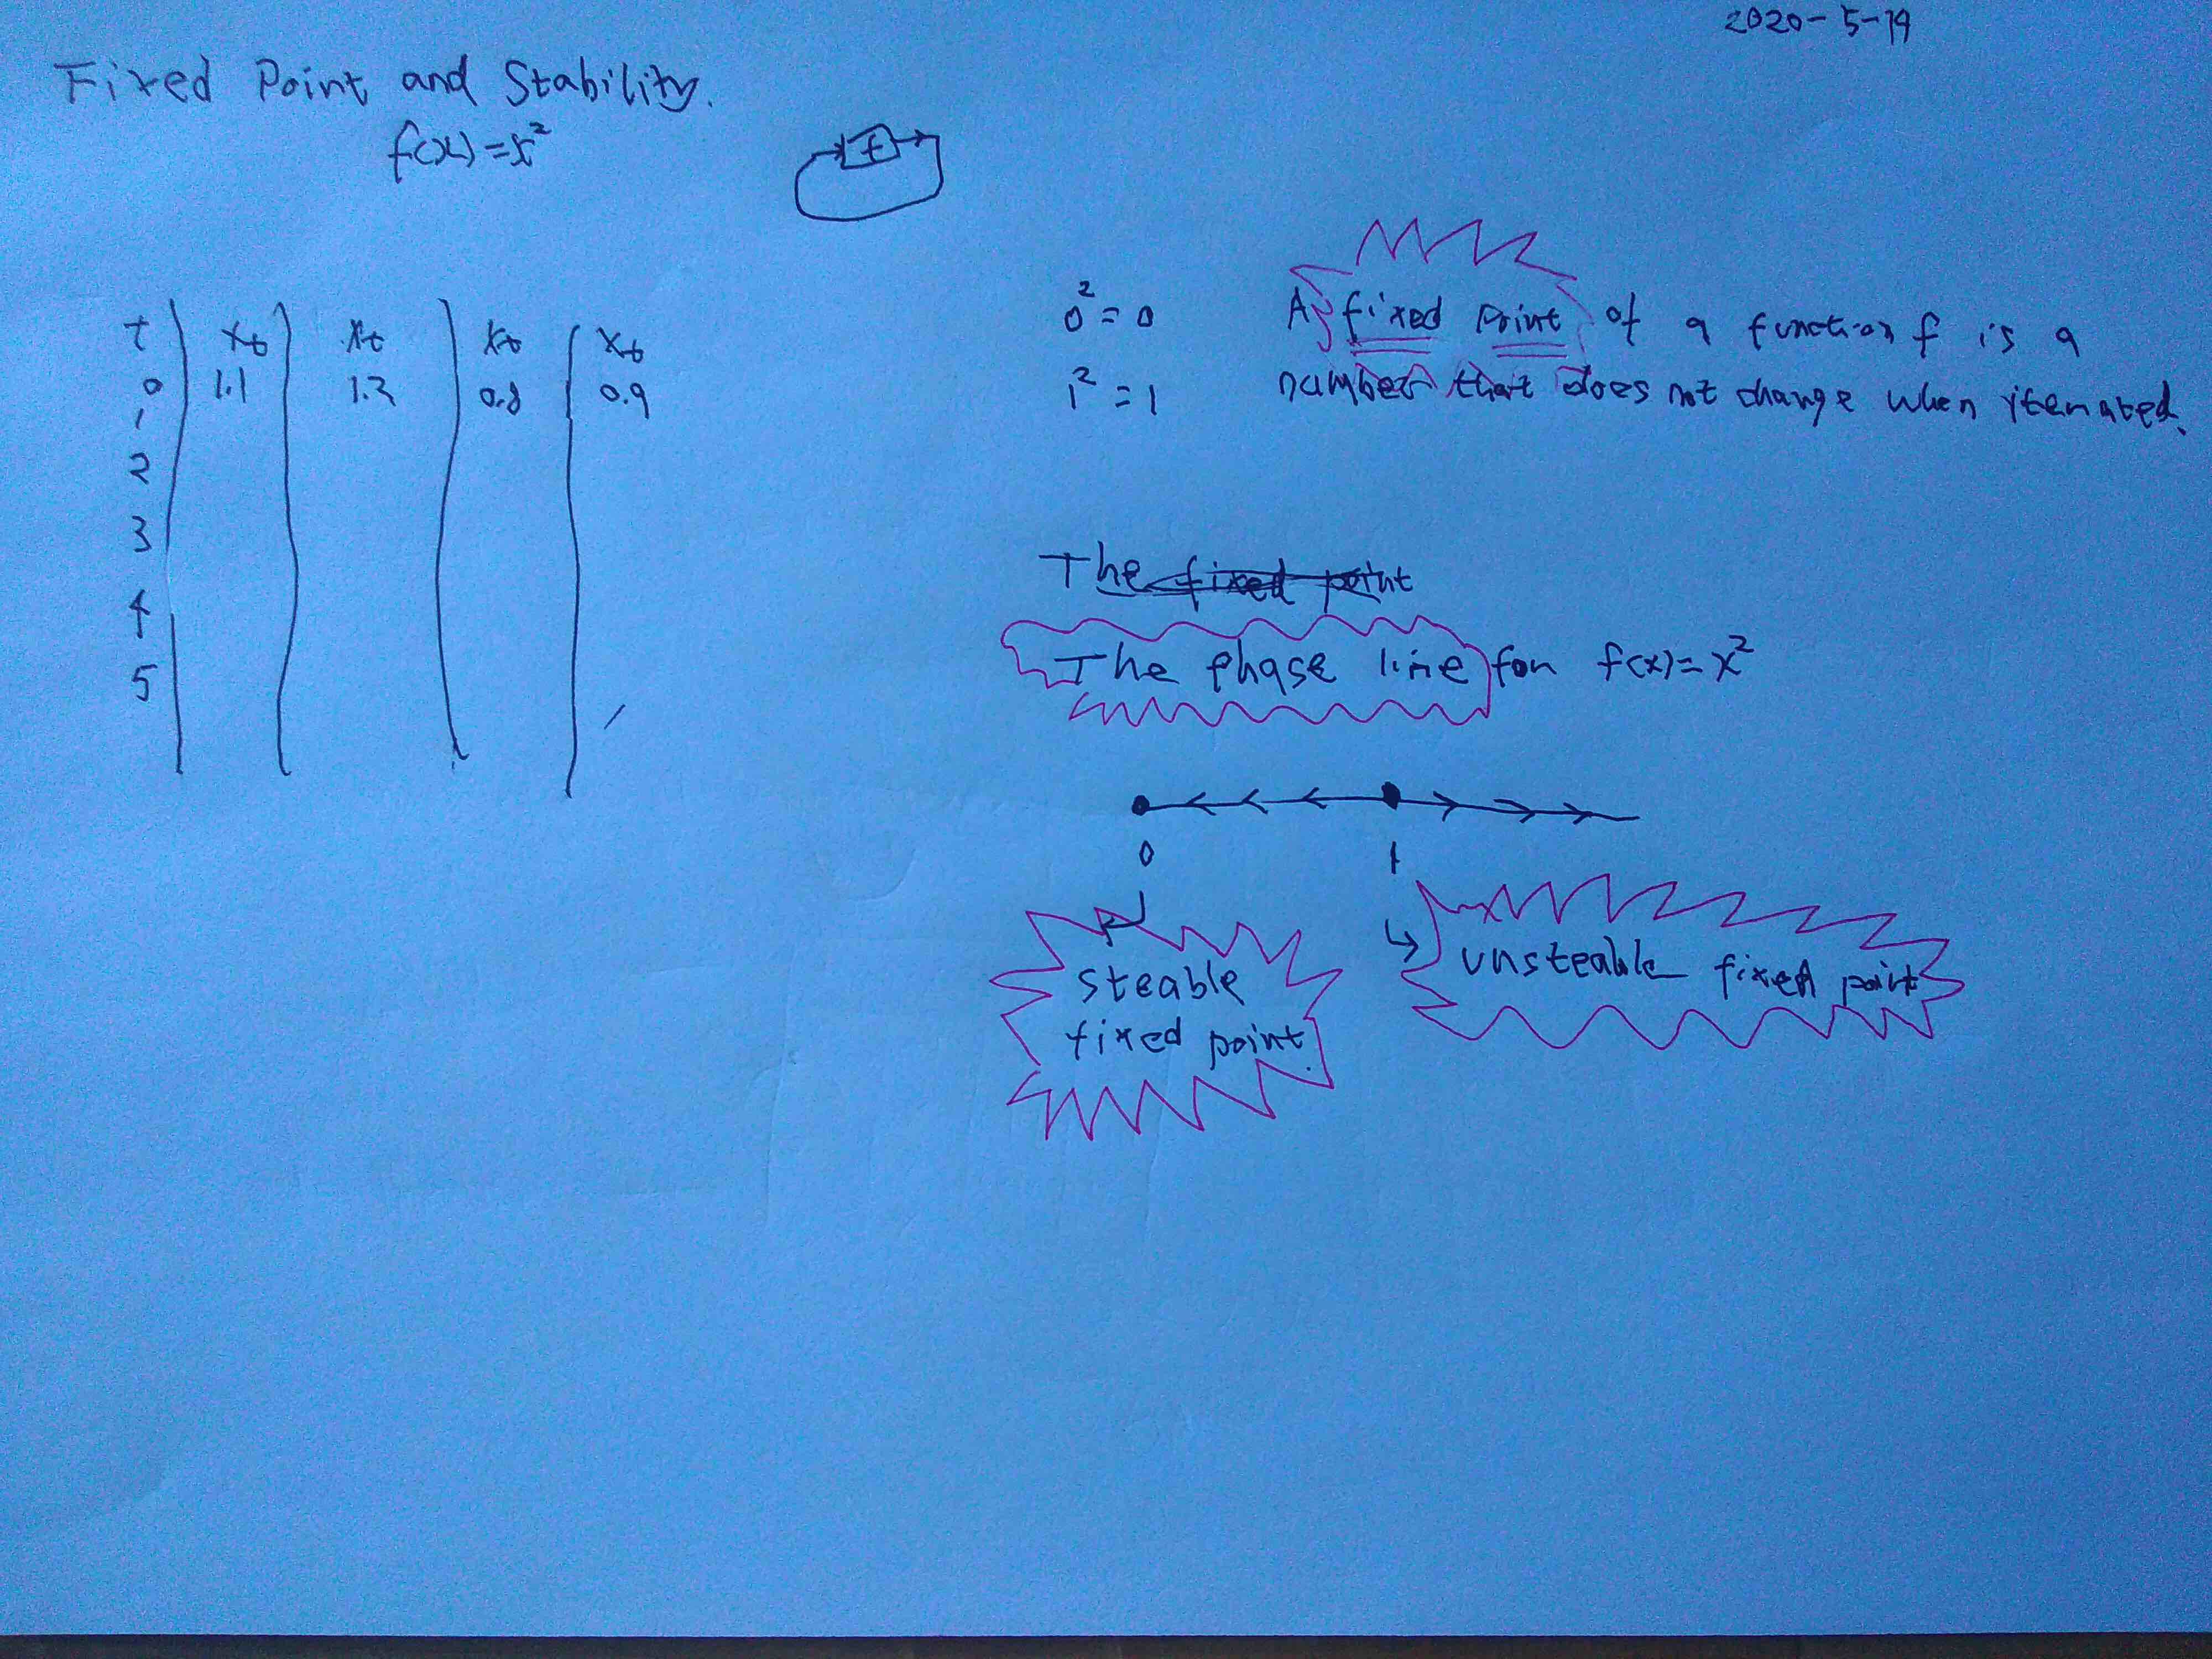 2020-5-19
Fixed Point and Stability.
f(x)=x²
f
t xt xt xt xt
0 1.1 1.2 0.8 0.9
1
2
3
4
5
0²=0
1²=1
A fixed point of a function f is a
number that does not change when itenated.
The fixed point
The phase line for f(x)=x²
0 1
steable
fixed point.
unsteable fixed point